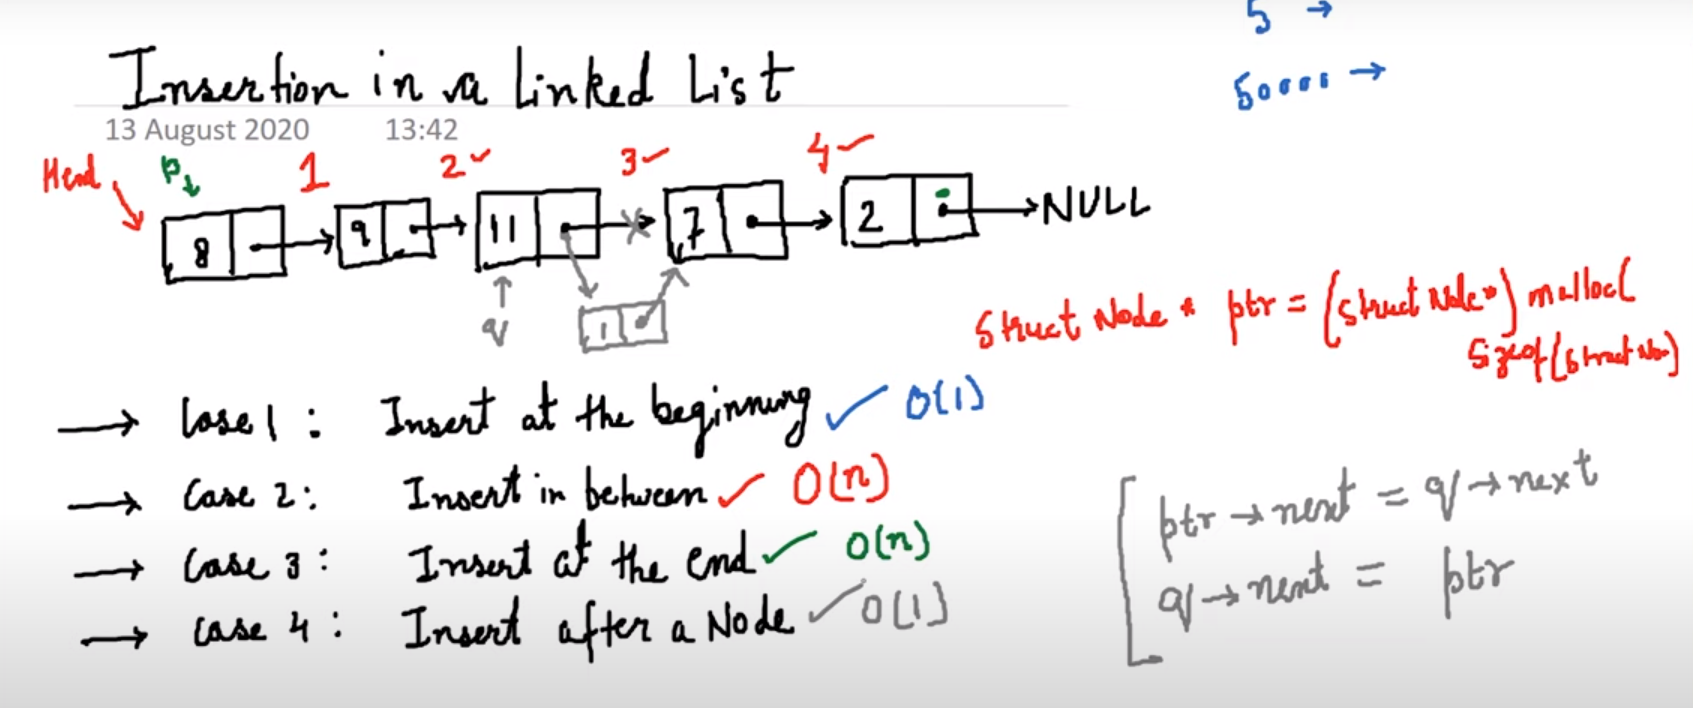 5 →
50000 →
Insertion in a Linked List
13 August 2020 13:42
Head p 1 2 ✓ 3 ✓ 4 ✓
8 9 11 7 2 NULL
q 1
Struct Node * ptr = (Struct Node*) malloc(
Sizeof(Struct No)
→ Case 1 : Insert at the beginning ✓ O(1)
→ Case 2 : Insert in between ✓ O(n)
→ Case 3 : Insert at the end ✓ O(n)
→ Case 4 : Insert after a Node ✓ O(1)
ptr → next = q → next
q → next = ptr